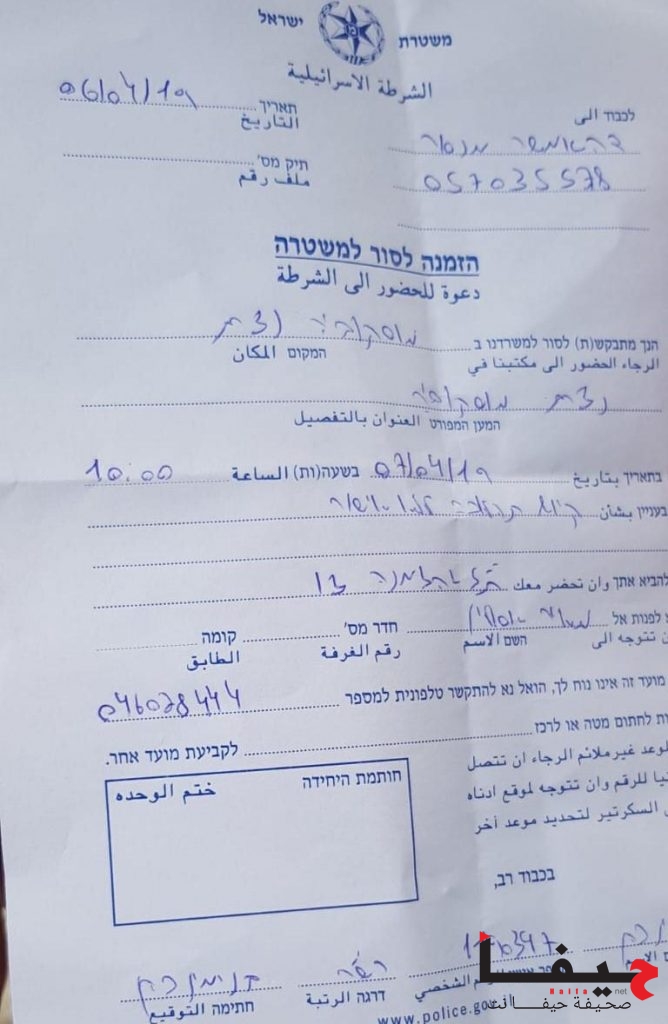 משטרת ישראל
الشرطة الاسرائيلية
תאריך 06/04/19
التاريخ
לכבוד الى
דהאמשה מנסור
057035578
תיק מס'
ملف رقم
הזמנה לסור למשטרה
دعوة للحضور الى الشرطة
הנך מתבקש(ת) לסור למשרדנו ב מוסקוביה נצרת
الرجاء الحضور الى مكتبنا في המקום المكان
נצרת מוסקוביה
המען המפורט العنوان بالتفصيل
בתאריך بتاريخ 07/04/19 בשעה(ות) الساعة 10:00
בעניין بشأن
להביא אתך وان تحضر معك הזמנה זו
לפנות אל חדר מס' קומה
تتوجه الى השם الاسم رقم الغرفة الطابق
מועד זה אינו נוח לך, הואל נא להתקשר טלפונית למספר 046028444
לחתום מטה או לרכז לקביעת מועד אחר.
غير ملائم الرجاء ان تتصل
للرقم وان تتوجه لموقع ادناه
السكرتير لتحديد موعد آخر
חותמת היחידה ختم الوحده
בכבוד רב,
דרגה الرتبة
חתימה التوقيع
الشخصي
www.police.gov
حيفا
Haifa.net
صحيفة حيفا نت